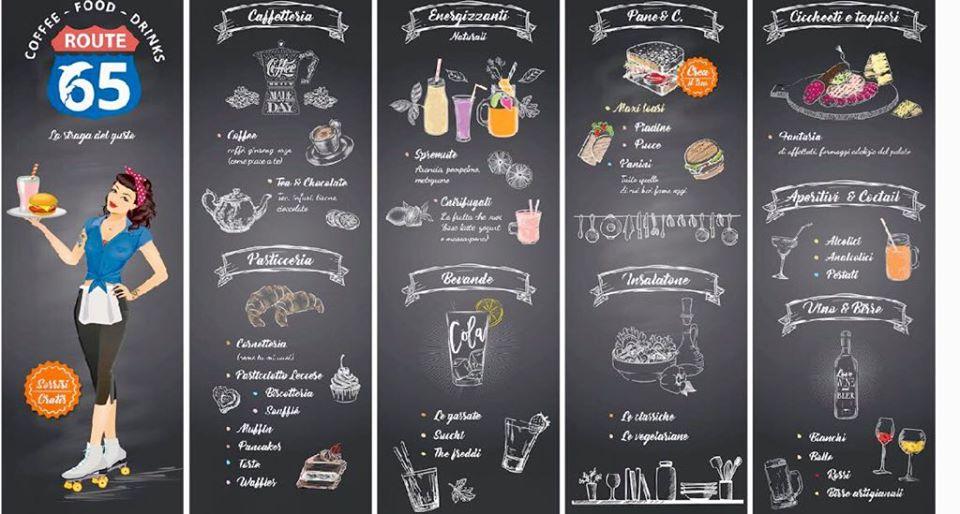 COFFEE - FOOD - DRINKS
ROUTE
65
La straga del gusto
Sorrisi
Gratis
Caffetteria
Coffee
MADE
DAY
Coffee
caffè, ginseng, orzo
(come piace a te)
Tea & Chocolate
tea, infusi, tisane,
cioccolato
Pasticceria
Cornetteria
Pasticciotto Leccese
Biscotteria
Soufflé
Muffin
Pancakes
Torte
Waffles
Energizzanti
Naturali
Spremute
Arancia, pompelmo,
melograno
Centrifugati
La frutta che vuoi
Base latte, yogurt
Bevande
Cola
Le gassate
Succhi
The freddi
Pane & C.
Crea
il tuo
Maxi toast
Piadine
Pucce
Panini
Tutto quello
di cui hai fame oggi
Insalatone
Le classiche
Le vegetariane
Cicchetti e taglieri
Fantasia
di affettati, formaggi e delizie del palato
Aperitivi & Coctail
Alcolici
Analcolici
Pestati
Vino & Birre
BEER
Bianchi
Bolle
Rossi
Birre artigianali